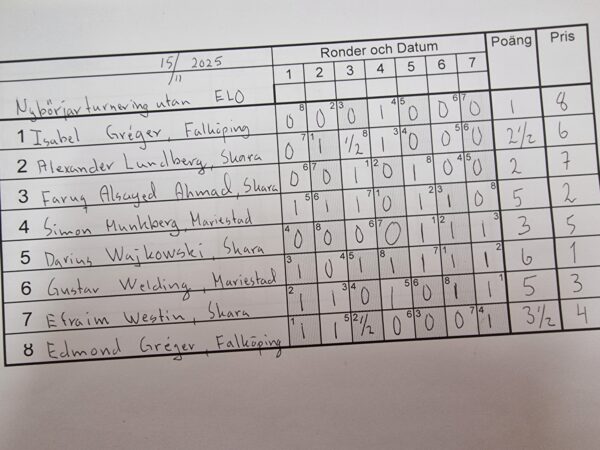 Ronder och Datum Poäng Pris
15/11 2025 1 2 3 4 5 6 7
Nybörjarturnering utan ELO
1 Isabel Gréger, Falköping 0 8 0 2 3 0 1 4 5 0 0 6 7 0 1 8
2 Alexander Lundberg, Skara 0 7 1 1 1/2 8 1 3 4 0 0 5 6 0 2 1/2 6
3 Faruq Alsayed Ahmad, Skara 0 6 7 0 1 1 2 0 1 8 0 4 5 0 2 7
4 Simon Munkberg, Mariestad 1 5 6 1 1 7 1 0 1 2 3 1 0 8 5 2
5 Darius Wajkowski, Skara 4 0 8 0 0 6 7 0 1 1 2 1 1 3 3 5
6 Gustav Welding, Mariestad 3 1 0 4 5 1 8 1 1 7 1 1 1 2 6 1
7 Efraim Westin, Skara 2 1 1 3 4 0 1 5 6 0 8 1 1 1 5 3
8 Edmond Gréger, Falköping 1 1 1 5 2 1/2 0 6 3 0 0 7 4 1 3 1/2 4